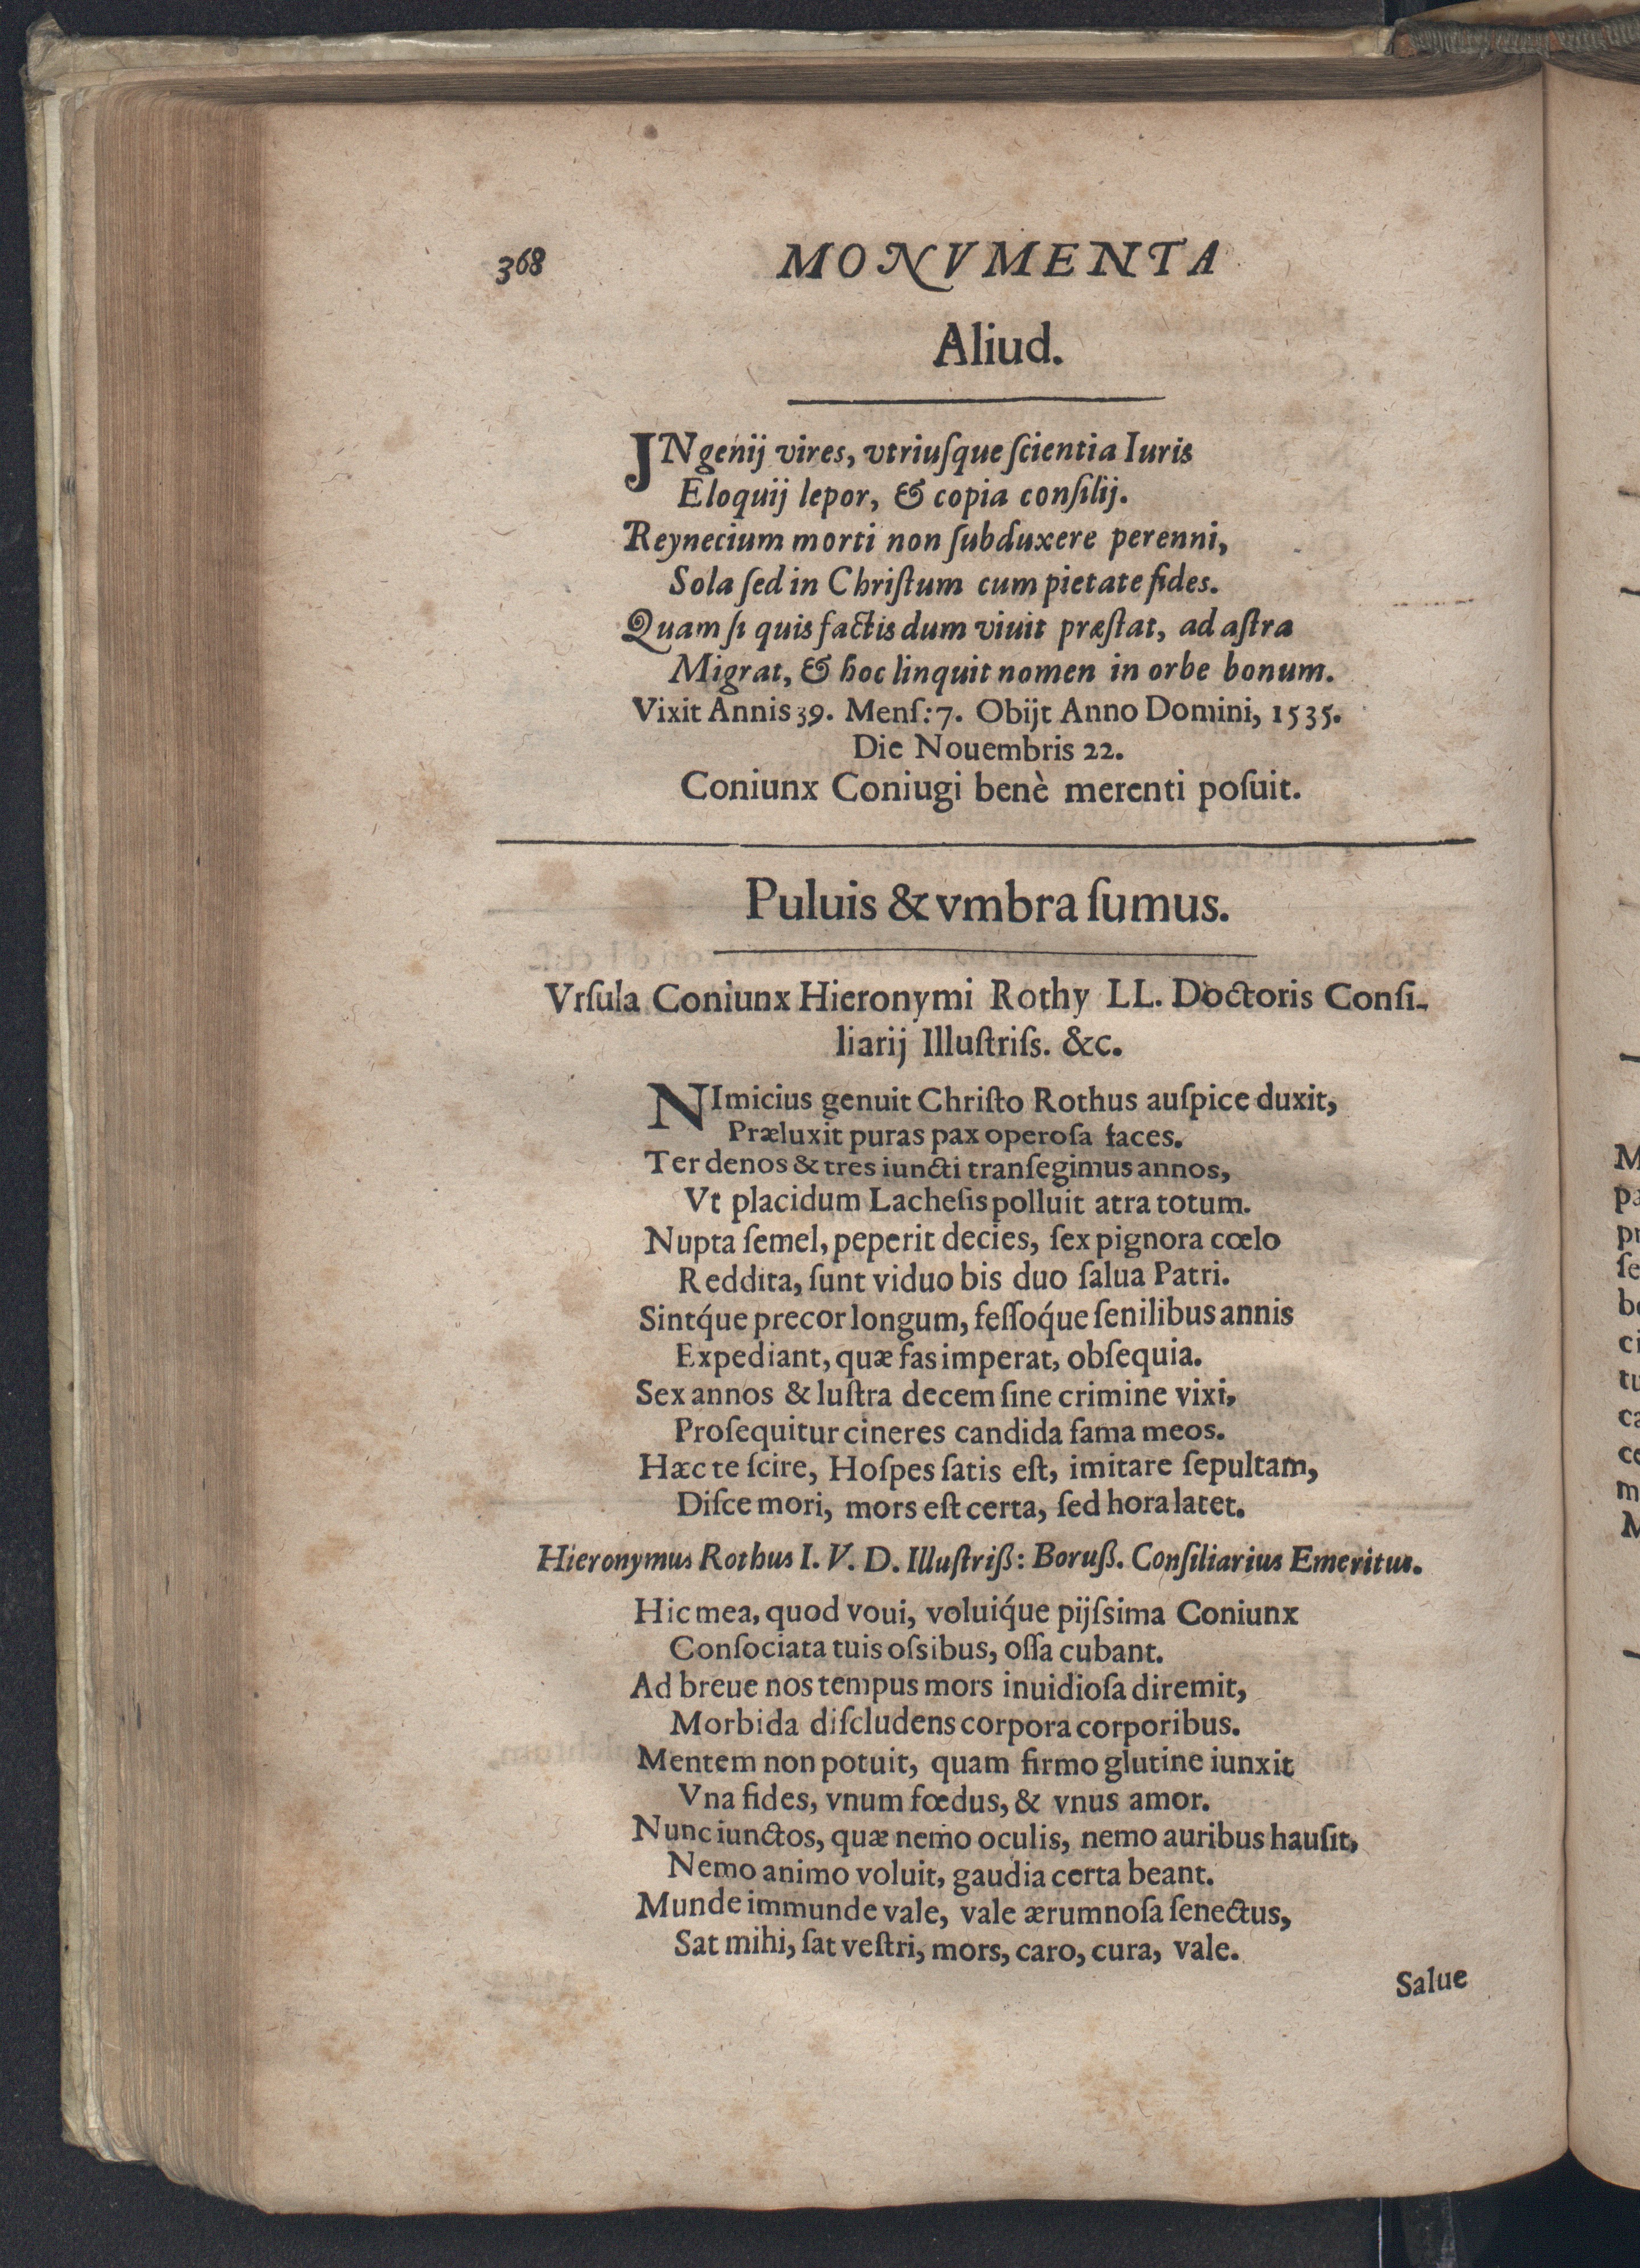 368 MONVMENTA
Aliud.
JNgenij vires, vtriuſque ſcientia Iuris
Eloquij lepor, & copia conſilij.
Reynecium morti non ſubduxere perenni,
Sola ſed in Chriſtum cum pietate fides.
Quam ſi quis factis dum viuit præſtat, ad aſtra
Migrat, & hoc linquit nomen in orbe bonum.
Vixit Annis 39. Menſ: 7. Obijt Anno Domini, 1535.
Die Nouembris 22.
Coniunx Coniugi benè merenti poſuit.
Puluis & vmbra ſumus.
Vrſula Coniunx Hieronymi Rothy LL. Doctoris Conſi-
liarij Illuſtriſs. &c.
NImicius genuit Chriſto Rothus auſpice duxit,
Præluxit puras pax operoſa faces.
Ter denos & tres iuncti tranſegimus annos,
Vt placidum Lacheſis polluit atra totum.
Nupta ſemel, peperit decies, ſex pignora cœlo
Reddita, ſunt viduo bis duo ſalua Patri.
Sintq́ue precor longum, feſſoq́ue ſenilibus annis
Expediant, quæ fas imperat, obſequia.
Sex annos & luſtra decem ſine crimine vixi,
Proſequitur cineres candida fama meos.
Hæc te ſcire, Hoſpes ſatis eſt, imitare ſepultam,
Diſce mori, mors eſt certa, ſed hora latet.
Hieronymus Rothus I. V. D. Illuſtriß: Boruß. Conſiliarius Emeritus.
Hic mea, quod voui, voluiq́ue pijſsima Coniunx
Conſociata tuis oſsibus, oſſa cubant.
Ad breue nos tempus mors inuidioſa diremit,
Morbida diſcludens corpora corporibus.
Mentem non potuit, quam firmo glutine iunxit
Vna fides, vnum fœdus, & vnus amor.
Nunc iunctos, quæ nemo oculis, nemo auribus hauſit,
Nemo animo voluit, gaudia certa beant.
Munde immunde vale, vale ærumnoſa ſenectus,
Sat mihi, ſat veſtri, mors, caro, cura, vale.
Salue